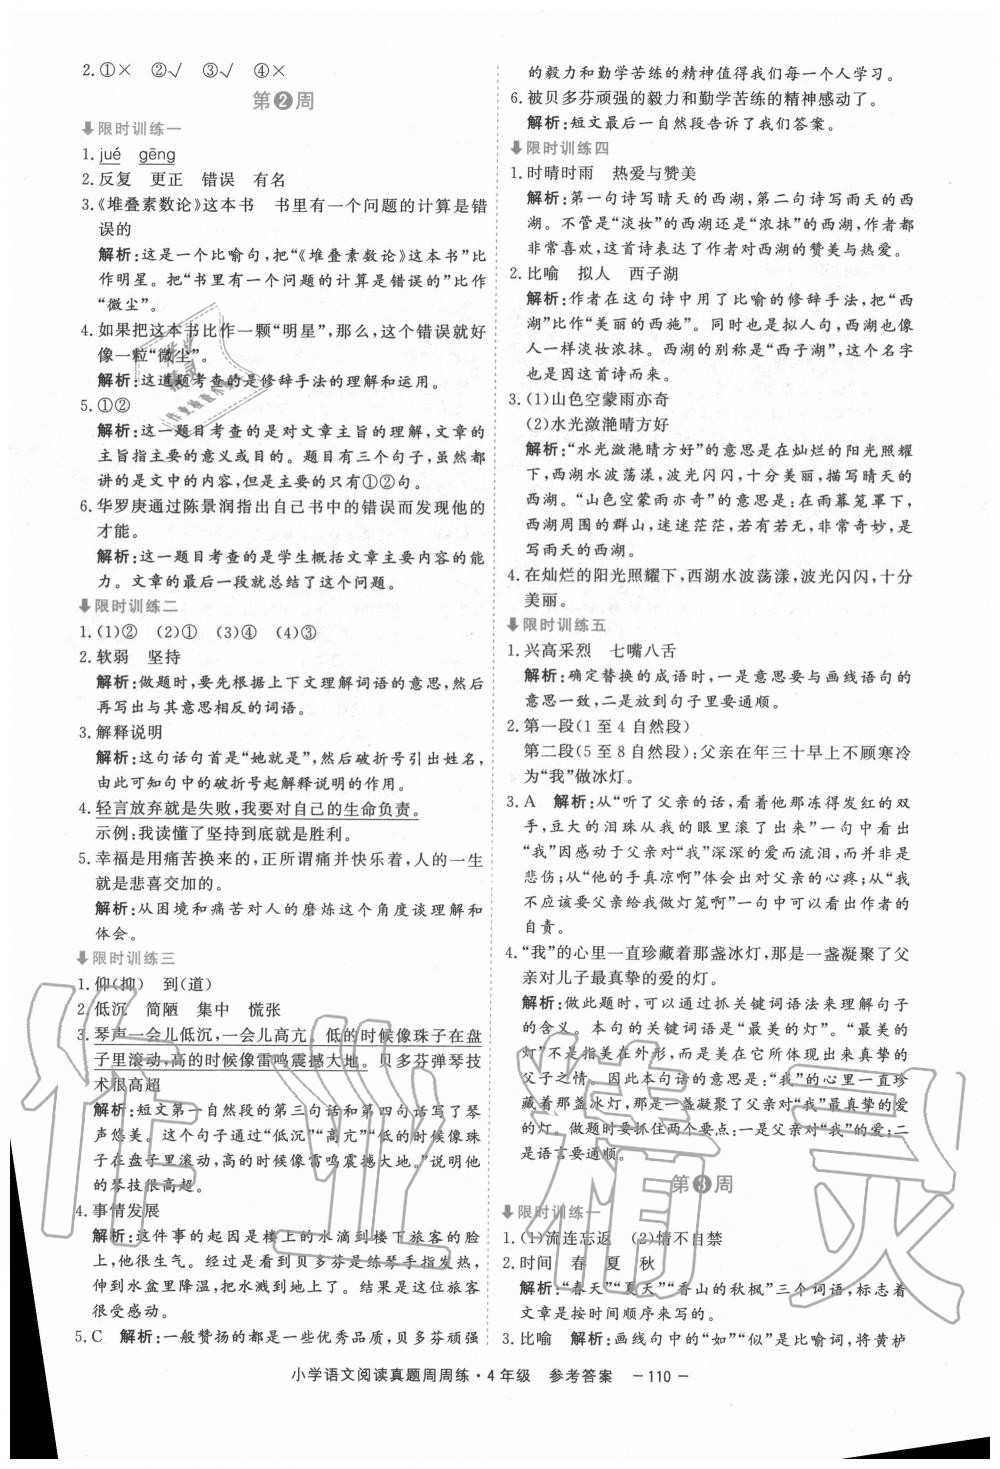 2. ①× ②√ ③√ ④×
第❷周
限时训练一
1. jué gēng
2. 反复 更正 错误 有名
3. 《堆叠素数论》这本书 书里有一个问题的计算是错
误的
解析:这是一个比喻句,把“《堆叠素数论》这本书”比
作明星。把“书里有一个问题的计算是错误的”比作
“微尘”。
4. 如果把这本书比作一颗“明星”,那么,这个错误就好
像一粒“微尘”。
解析:这道题考查的是修辞手法的理解和运用。
5. ①②
解析:这一题目考查的是对文章主旨的理解,文章的
主旨指主要的意义或目的。题目有三个句子,虽然都
讲的是文中的内容,但是主要的只有①②句。
6. 华罗庚通过陈景润指出自己书中的错误而发现他的
才能。
解析:这一题目考查的是学生概括文章主要内容的能
力。文章的最后一段就总结了这个问题。
限时训练二
1. (1)② (2)① (3)④ (4)③
2. 软弱 坚持
解析:做题时,要先根据上下文理解词语的意思,然后
再写出与其意思相反的词语。
3. 解释说明
解析:这句话句首是“她就是”,然后破折号引出姓名,
由此可知句中的破折号起解释说明的作用。
4. 轻言放弃就是失败,我要对自己的生命负责。
示例:我读懂了坚持到底就是胜利。
5. 幸福是用痛苦换来的,正所谓痛并快乐着,人的一生
就是悲喜交加的。
解析:从困境和痛苦对人的磨炼这个角度谈理解和
体会。
限时训练三
1. 仰(抑) 到(道)
2. 低沉 简陋 集中 慌张
3. 琴声一会儿低沉,一会儿高亢 低的时候像珠子在盘
子里滚动,高的时候像雷鸣震撼大地。贝多芬弹琴技
术很高超
解析:短文第一自然段的第三句话和第四句话写了琴
声悠美。这个句子通过“低沉”“高亢”“低的时候像珠
子在盘子里滚动,高的时候像雷鸣震撼大地。”说明他
的琴技很高超。
4. 事情发展
解析:这件事的起因是楼上的水滴到楼下旅客的脸
上,他很生气。经过是看到贝多芬是练琴手指发热,
伸到水盆里降温,把水溅到地上。结果是这位旅客
很受感动。
5. C 解析:一般赞扬的都是一些优秀品质,贝多芬顽强
的毅力和勤学苦练的精神值得我们每一个人学习。
6. 被贝多芬顽强的毅力和勤学苦练的精神感动了。
解析:短文最后一自然段告诉了我们答案。
限时训练四
1. 时晴时雨 热爱与赞美
解析:第一句诗写晴天的西湖,第二句诗写雨天的西
湖。不管是“淡妆”的西湖还是“浓抹”的西湖,作者都
非常喜欢,这首诗表达了作者对西湖的赞美与热爱。
2. 比喻 拟人 西子湖
解析:作者在这句诗中用了比喻的修辞手法,把“西
湖”比作“美丽的西施”。同时也是拟人句,西湖也像
人一样淡妆浓抹。西湖的别称是“西子湖”,这个名字
也是因这首诗而来。
3. (1)山色空蒙雨亦奇
(2)水光潋滟晴方好
解析:“水光潋滟晴方好”的意思是在灿烂的阳光照耀
下,西湖水波荡漾,波光闪闪,十分美丽,描写晴天的
西湖。“山色空蒙雨亦奇”的意思是:在雨幕笼罩下,
西湖周围的群山,迷迷茫茫,若有若无,非常奇妙,是
写雨天的西湖。
4. 在灿烂的阳光照耀下,西湖水波荡漾,波光闪闪,十分
美丽。
限时训练五
1. 兴高采烈 七嘴八舌
解析:确定替换的成语时,一是意思要与画线语句的
意思一致,二是放到句子里要通顺。
2. 第一段(1至4自然段)
第二段(5至8自然段):父亲在年三十早上不顾寒冷
为“我”做冰灯。
3. A 解析:从“听了父亲的话,看着他那冻得发红的双
手,豆大的泪珠从我的眼里滚了出来”一句中看出
“我”因感动于父亲对“我”深深的爱而流泪,而并非是
悲伤;从“他的手真凉啊”体会出对父亲的心疼;从“我
不应该要父亲给我做灯笼啊”一句中可以看出作者的
自责。
4. “我”的心里一直珍藏着那盏冰灯,那是一盏凝聚了父
亲对儿子最真挚的爱的灯。
解析:做此题时,可以通过抓关键词语法来理解句子
的含义。本句的关键词语是“最美的灯”。“最美的
灯”不是指美在外形,而是美在它所体现出来真挚的
父子之情。因此本句话的意思是:“我”的心里一直珍
藏着那盏冰灯,那是一盏凝聚了父亲对“我”最真挚的爱
的灯。做题时要抓住两个要点:一是父亲对“我”的爱;二
是语言要通顺。
第❸周
限时训练一
1. (1)流连忘返 (2)情不自禁
2. 时间 春 夏 秋
解析:“春天”“夏天”“香山的秋枫”三个词语,标志着
文章是按时间顺序来写的。
3. 比喻 解析:画线句中的“如”“似”是比喻词,将黄栌
小学语文阅读真题周周练·4年级 参考答案 －110－
作业精灵